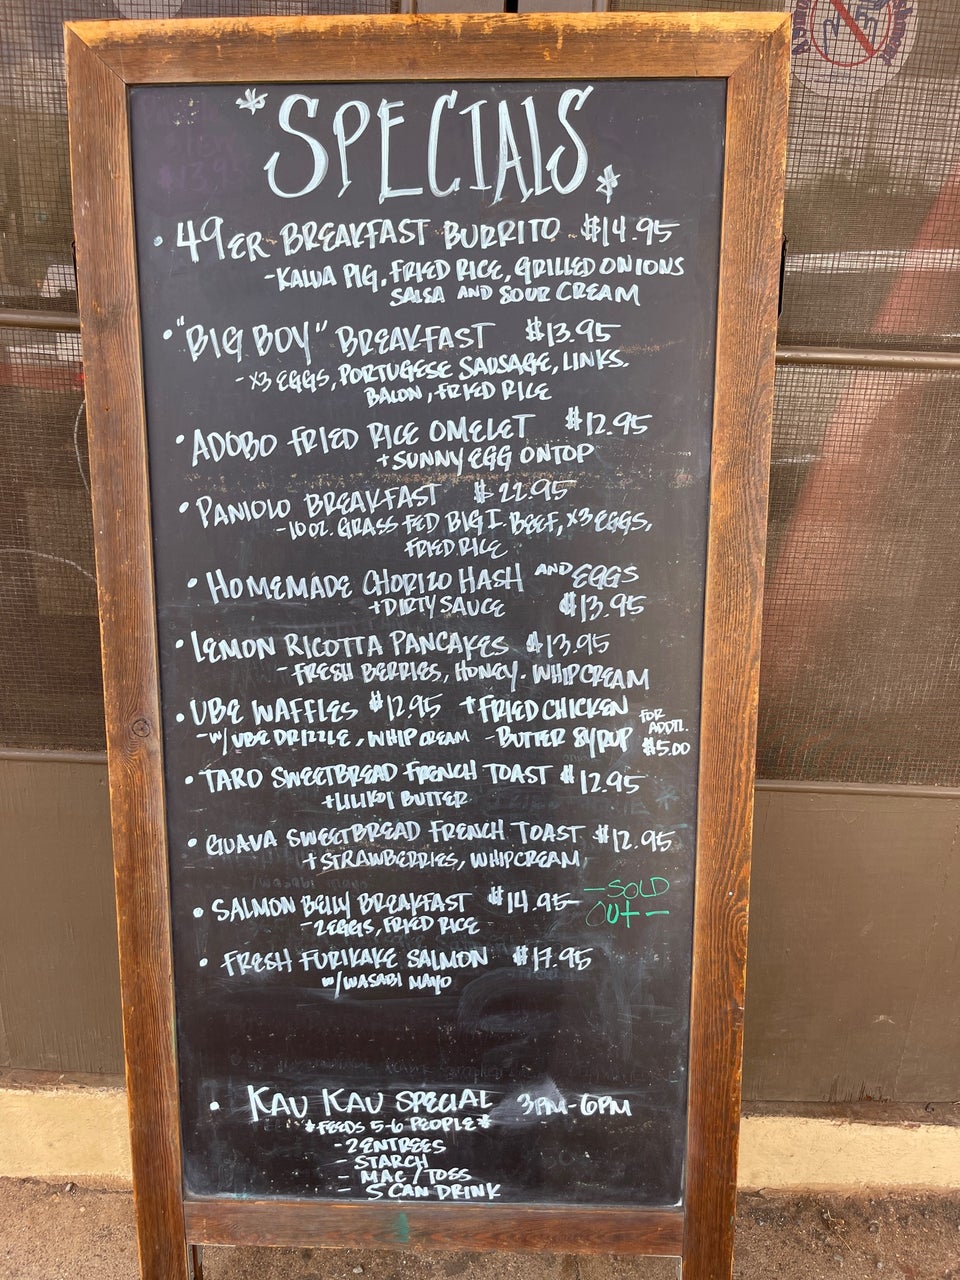 *SPECIALS*
• 49ER BREAKFAST BURRITO $14.95
-KALUA PIG, FRIED RICE, GRILLED ONIONS
SALSA AND SOUR CREAM
• "BIG BOY" BREAKFAST $13.95
- x3 EGGS, PORTUGESE SAUSAGE, LINKS.
BACON, FRIED RICE
• ADOBO FRIED RICE OMELET $12.95
+ SUNNY EGG ON TOP
• PANIOLO BREAKFAST $22.95
- 10 OZ. GRASS FED BIG I. BEEF, x3 EGGS,
FRIED RICE
• HOMEMADE CHORIZO HASH AND EGGS
+ DIRTY SAUCE $13.95
• LEMON RICOTTA PANCAKES $13.95
- FRESH BERRIES, HONEY. WHIP CREAM
• UBE WAFFLES $12.95 + FRIED CHICKEN FOR ADDTL.
-W/ UBE DRIZZLE, WHIP CREAM -BUTTER SYRUP $5.00
• TARO SWEETBREAD FRENCH TOAST $12.95
+ LILIKOI BUTTER
• GUAVA SWEETBREAD FRENCH TOAST $12.95
+ STRAWBERRIES, WHIPCREAM
• SALMON BELLY BREAKFAST $14.95 -SOLD
OUT-
-2 EGGS, FRIED RICE
• FRESH FURIKAKE SALMON $17.95
W/ WASABI MAYO
• KAU KAU SPECIAL 3PM-6PM
*FEEDS 5-6 PEOPLE*
- 2 ENTREES
- STARCH
- MAC / TOSS
- 5 CAN DRINK